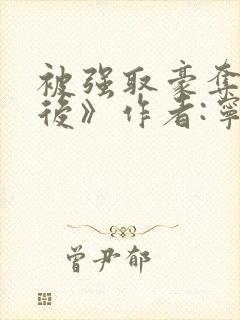 被强取豪夺
後》作者:寧
曾尹郁